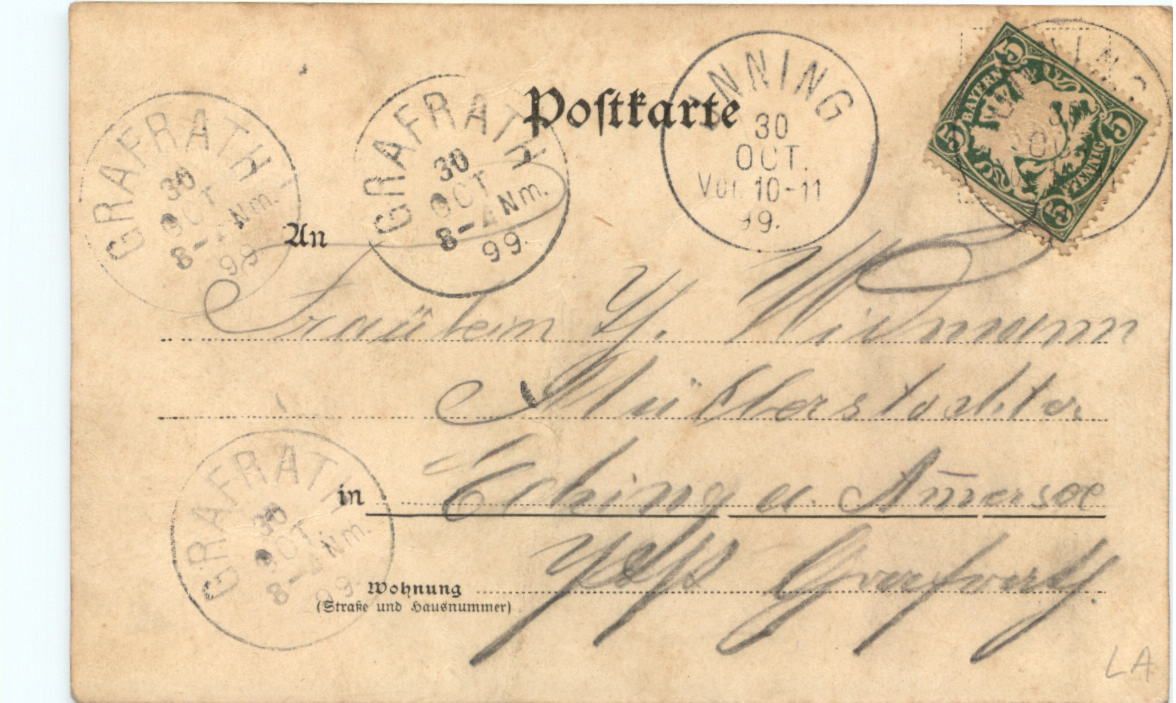 Postkarte
GRAFRATH
30
OCT
8-
Nm.
99.
GRAFRATH
30
OCT
8-
Nm.
99.
NNING
30
OCT.
Vor. 10-11
99.
5
BAYERN
5
5
PFENNIG
5
An
Fräulein Widmann
Müllerstochter
in Eching a. Am̅ersee
Post Grafrath.
GRAFRATH
OCT
8-
Nm.
99.
Wohnung
(Straße und Hausnummer)
LA